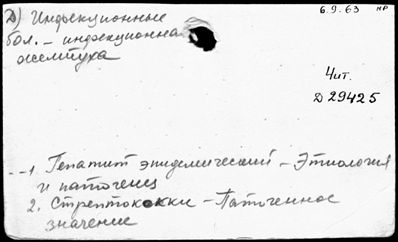 Д) Инфекционные
бол. – инфекционна
желтуха
6.9.63 НР
Чит.
Д 29425
1. Гепатит эпидемический – Этиология
и патогенез
2. Стрептококки – Патогенное
значение